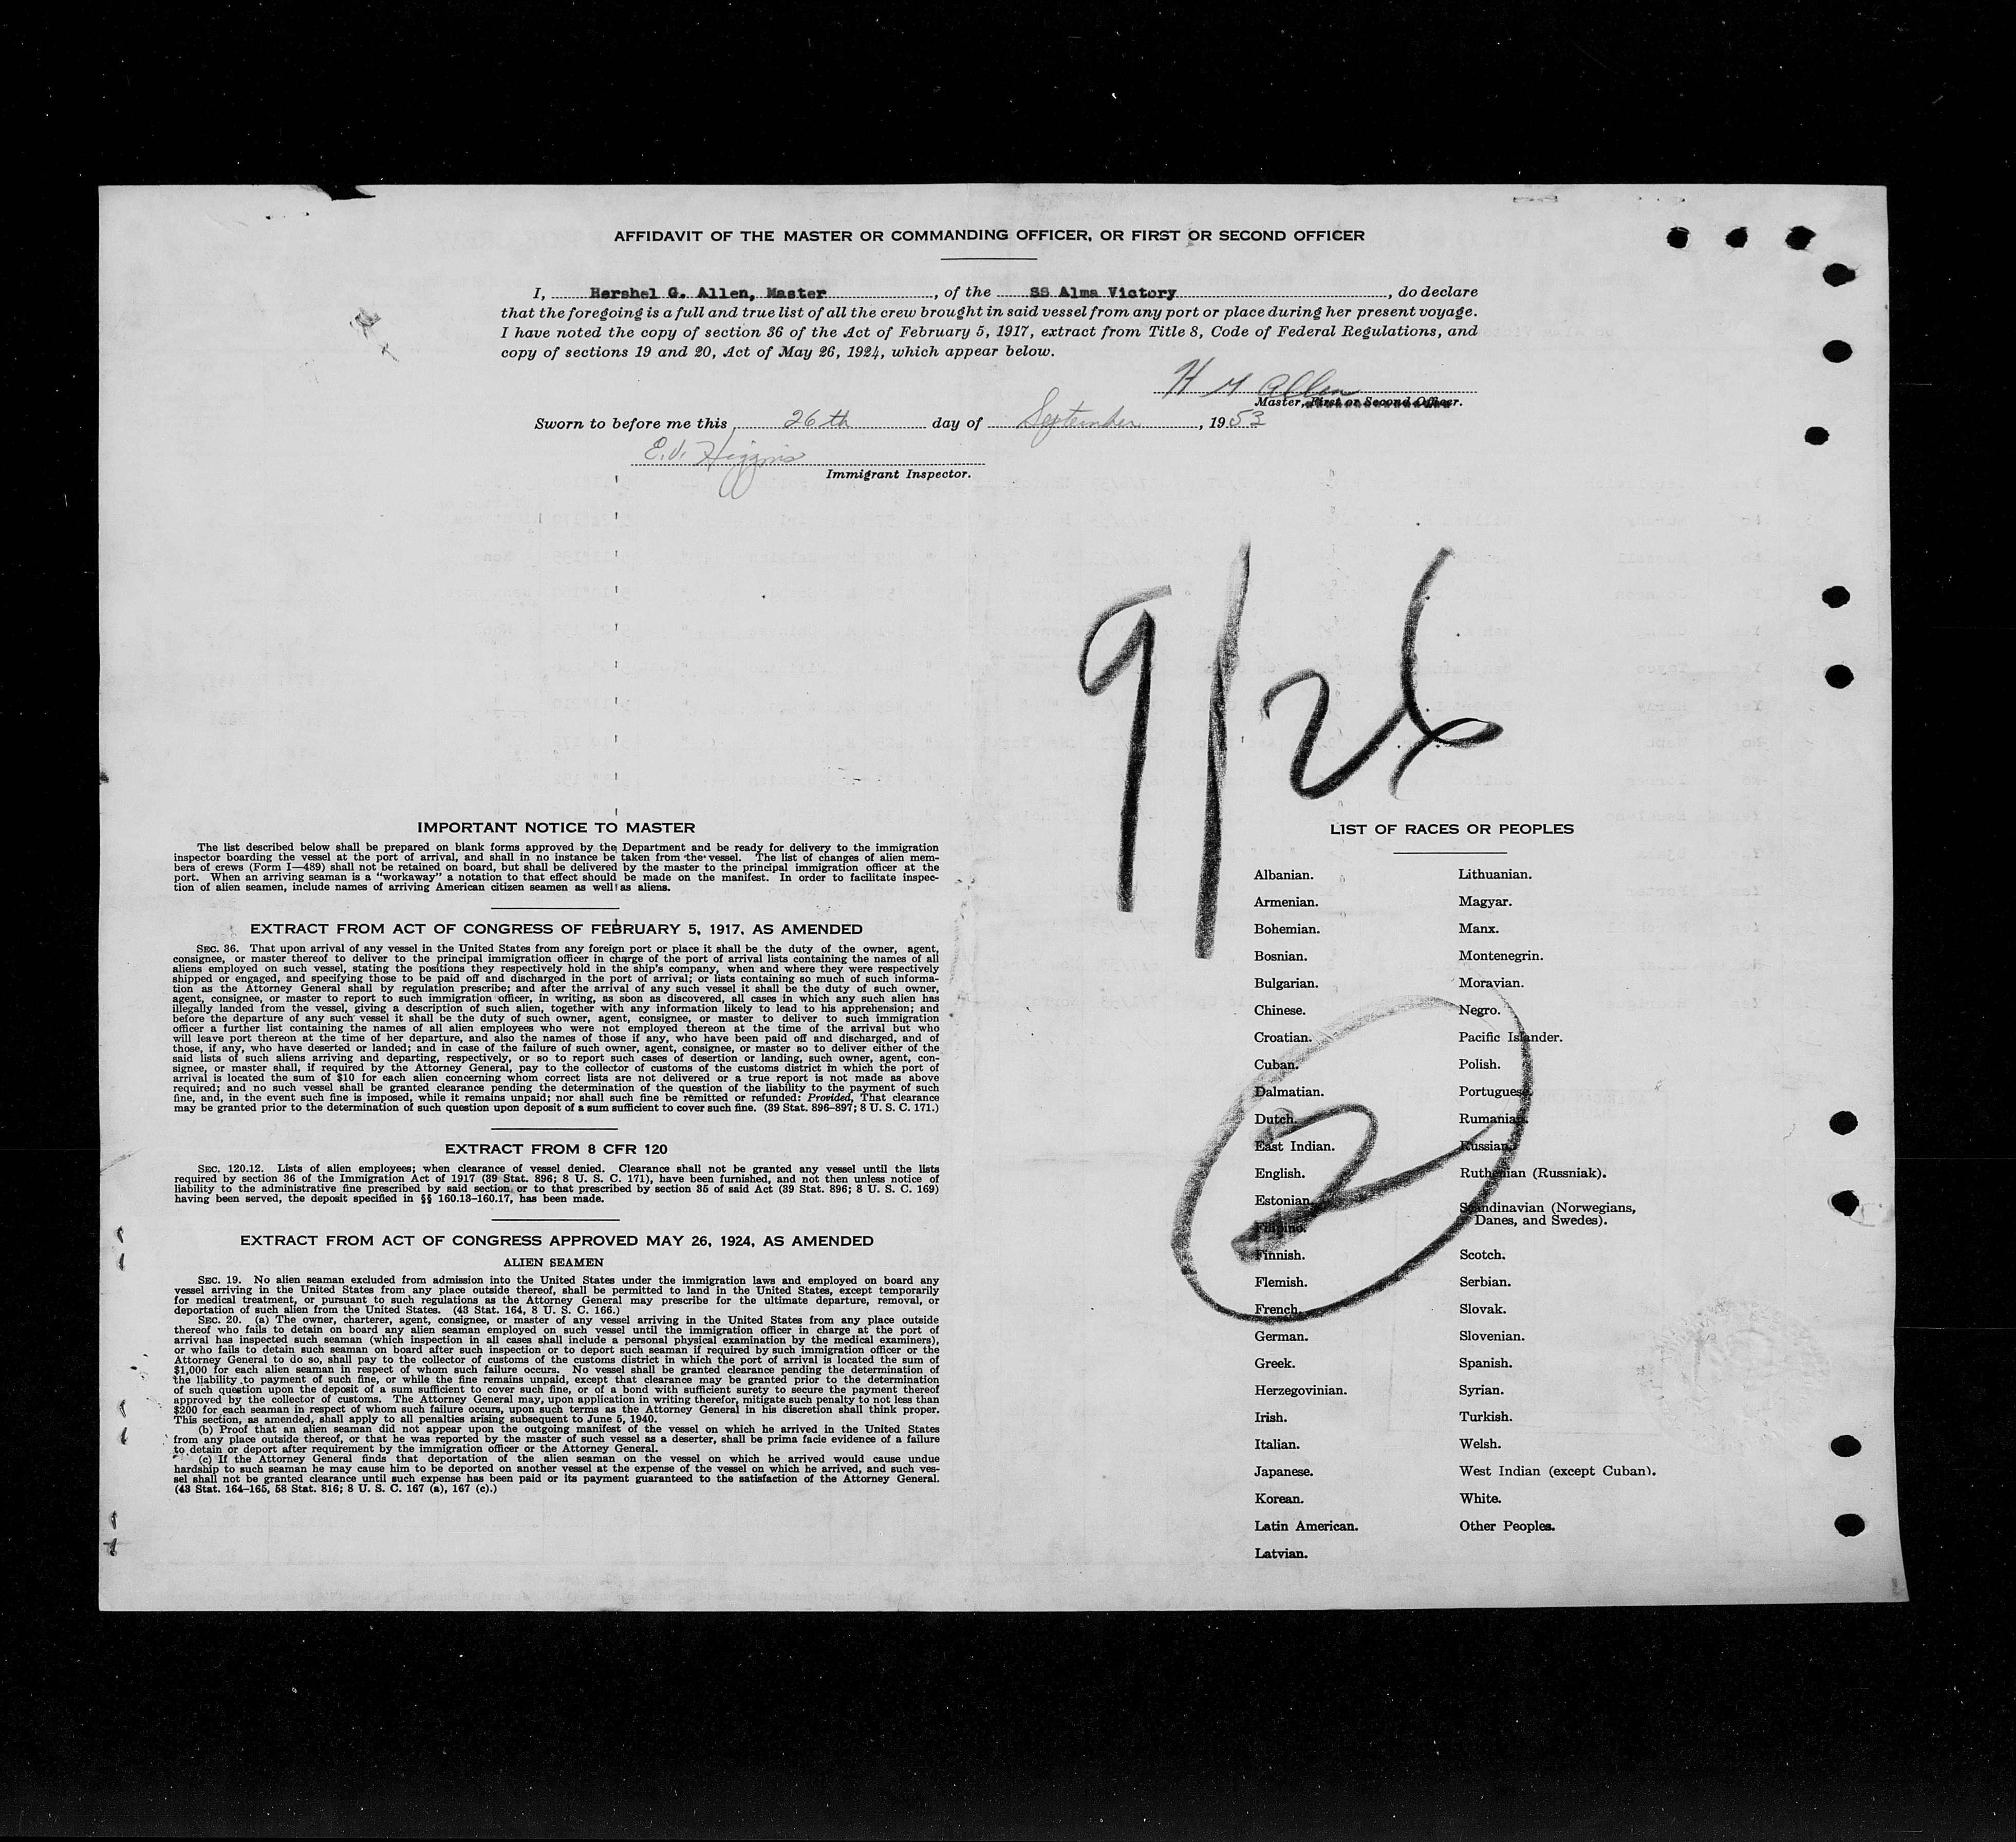 AFFIDAVIT OF THE MASTER OR COMMANDING OFFICER, OR FIRST OR SECOND OFFICER
I, Hershel G. Allen, Master, of the SS Alma Victory, do declare
that the foregoing is a full and true list of all the crew brought in said vessel from any port or place during her present voyage.
I have noted the copy of section 36 of the Act of February 5, 1917, extract from Title 8, Code of Federal Regulations, and
copy of sections 19 and 20, Act of May 26, 1924, which appear below.
Allen
Master, First or Second Officer.
Sworn to before me this 26th day of September, 1953
E.V. Higgins
Immigrant Inspector.
9/26
IMPORTANT NOTICE TO MASTER
The list described below shall be prepared on blank forms approved by the Department and be ready for delivery to the immigration
inspector boarding the vessel at the port of arrival, and shall in no instance be taken from the vessel. The list of changes of alien mem-
bers of crews (Form I—489) shall not be retained on board, but shall be delivered by the master to the principal immigration officer at the
port. When an arriving seaman is a "workaway" a notation to that effect should be made on the manifest. In order to facilitate inspec-
tion of alien seamen, include names of arriving American citizen seamen as well as aliens.
EXTRACT FROM ACT OF CONGRESS OF FEBRUARY 5, 1917, AS AMENDED
SEC. 36. That upon arrival of any vessel in the United States from any foreign port or place it shall be the duty of the owner, agent,
consignee, or master thereof to deliver to the principal immigration officer in charge of the port of arrival lists containing the names of all
aliens employed on such vessel, stating the positions they respectively hold in the ship's company, when and where they were respectively
shipped or engaged, and specifying those to be paid off and discharged in the port of arrival; or lists containing so much of such informa-
tion as the Attorney General shall by regulation prescribe; and after the arrival of any such vessel it shall be the duty of such owner,
agent, consignee, or master to report to such immigration officer, in writing, as soon as discovered, all cases in which any such alien has
illegally landed from the vessel, giving a description of such alien, together with any information likely to lead to his apprehension; and
before the departure of any such vessel it shall be the duty of such owner, agent, consignee, or master to deliver to such immigration
officer a further list containing the names of all alien employees who were not employed thereon at the time of the arrival but who
will leave port thereon at the time of her departure, and also the names of those if any, who have been paid off and discharged, and of
those, if any, who have deserted or landed; and in case of the failure of such owner, agent, consignee, or master so to deliver either of the
said lists of such aliens arriving and departing, respectively, or so to report such cases of desertion or landing, such owner, agent, con-
signee, or master shall, if required by the Attorney General, pay to the collector of customs of the customs district in which the port of
arrival is located the sum of $10 for each alien concerning whom correct lists are not delivered or a true report is not made as above
required; and no such vessel shall be granted clearance pending the determination of the question of the liability to the payment of such
fine, and, in the event such fine is imposed, while it remains unpaid; nor shall such fine be remitted or refunded: Provided, That clearance
may be granted prior to the determination of such question upon deposit of a sum sufficient to cover such fine. (39 Stat. 896–897; 8 U. S. C. 171.)
EXTRACT FROM 8 CFR 120
SEC. 120.12. Lists of alien employees; when clearance of vessel denied. Clearance shall not be granted any vessel until the lists
required by section 36 of the Immigration Act of 1917 (39 Stat. 896; 8 U. S. C. 171), have been furnished, and not then unless notice of
liability to the administrative fine prescribed by said section or to that prescribed by section 35 of said Act (39 Stat. 896; 8 U. S. C. 169)
having been served, the deposit specified in §§ 160.13–160.17, has been made.
EXTRACT FROM ACT OF CONGRESS APPROVED MAY 26, 1924, AS AMENDED
ALIEN SEAMEN
SEC. 19. No alien seaman excluded from admission into the United States under the immigration laws and employed on board any
vessel arriving in the United States from any place outside thereof, shall be permitted to land in the United States, except temporarily
for medical treatment, or pursuant to such regulations as the Attorney General may prescribe for the ultimate departure, removal, or
deportation of such alien from the United States. (43 Stat. 164, 8 U. S. C. 166.)
SEC. 20. (a) The owner, charterer, agent, consignee, or master of any vessel arriving in the United States from any place outside
thereof who fails to detain on board any alien seaman employed on such vessel until the immigration officer in charge at the port of
arrival has inspected such seaman (which inspection in all cases shall include a personal physical examination by the medical examiners),
or who fails to detain such seaman on board after such inspection or to deport such seaman if required by such immigration officer or the
Attorney General to do so, shall pay to the collector of customs of the customs district in which the port of arrival is located the sum of
$1,000 for each alien seaman in respect of whom such failure occurs. No vessel shall be granted clearance pending the determination of
the liability to payment of such fine, or while the fine remains unpaid, except that clearance may be granted prior to the determination
of such question upon the deposit of a sum sufficient to cover such fine, or of a bond with sufficient surety to secure the payment thereof
approved by the collector of customs. The Attorney General may, upon application in writing therefor, mitigate such penalty to not less than
$200 for each seaman in respect of whom such failure occurs, upon such terms as the Attorney General in his discretion shall think proper.
This section, as amended, shall apply to all penalties arising subsequent to June 5, 1940.
(b) Proof that an alien seaman did not appear upon the outgoing manifest of the vessel on which he arrived in the United States
from any place outside thereof, or that he was reported by the master of such vessel as a deserter, shall be prima facie evidence of a failure
to detain or deport after requirement by the immigration officer or the Attorney General.
(c) If the Attorney General finds that deportation of the alien seaman on the vessel on which he arrived would cause undue
hardship to such seaman he may cause him to be deported on another vessel at the expense of the vessel on which he arrived, and such ves-
sel shall not be granted clearance until such expense has been paid or its payment guaranteed to the satisfaction of the Attorney General.
(43 Stat. 164–165, 58 Stat. 816; 8 U. S. C. 167 (a), 167 (c).)
LIST OF RACES OR PEOPLES
Albanian.
Armenian.
Bohemian.
Bosnian.
Bulgarian.
Chinese.
Croatian.
Cuban.
Dalmatian.
Dutch.
East Indian.
English.
Estonian.
Filipino.
Finnish.
Flemish.
French.
German.
Greek.
Herzegovinian.
Irish.
Italian.
Japanese.
Korean.
Latin American.
Latvian.
Lithuanian.
Magyar.
Manx.
Montenegrin.
Moravian.
Negro.
Pacific Islander.
Polish.
Portuguese.
Rumanian.
Russian.
Ruthenian (Russniak).
Scandinavian (Norwegians,
Danes, and Swedes).
Scotch.
Serbian.
Slovak.
Slovenian.
Spanish.
Syrian.
Turkish.
Welsh.
West Indian (except Cuban).
White.
Other Peoples.
2